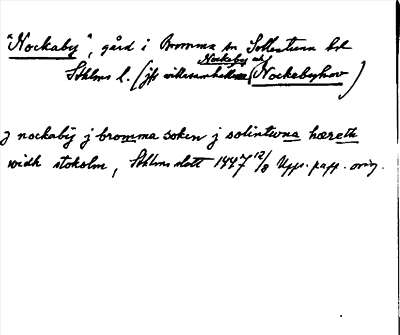 "Nockaby", gård i Bromma sn Sollentuna hd
Sthlms l. (jfr villasamhällena Nockeby och Nockebyhov)
J nockaby j bromma soken j solintuna hæreth
widh stokolm, Sthlms slott 1447 12/8 Upps. papp. orig.